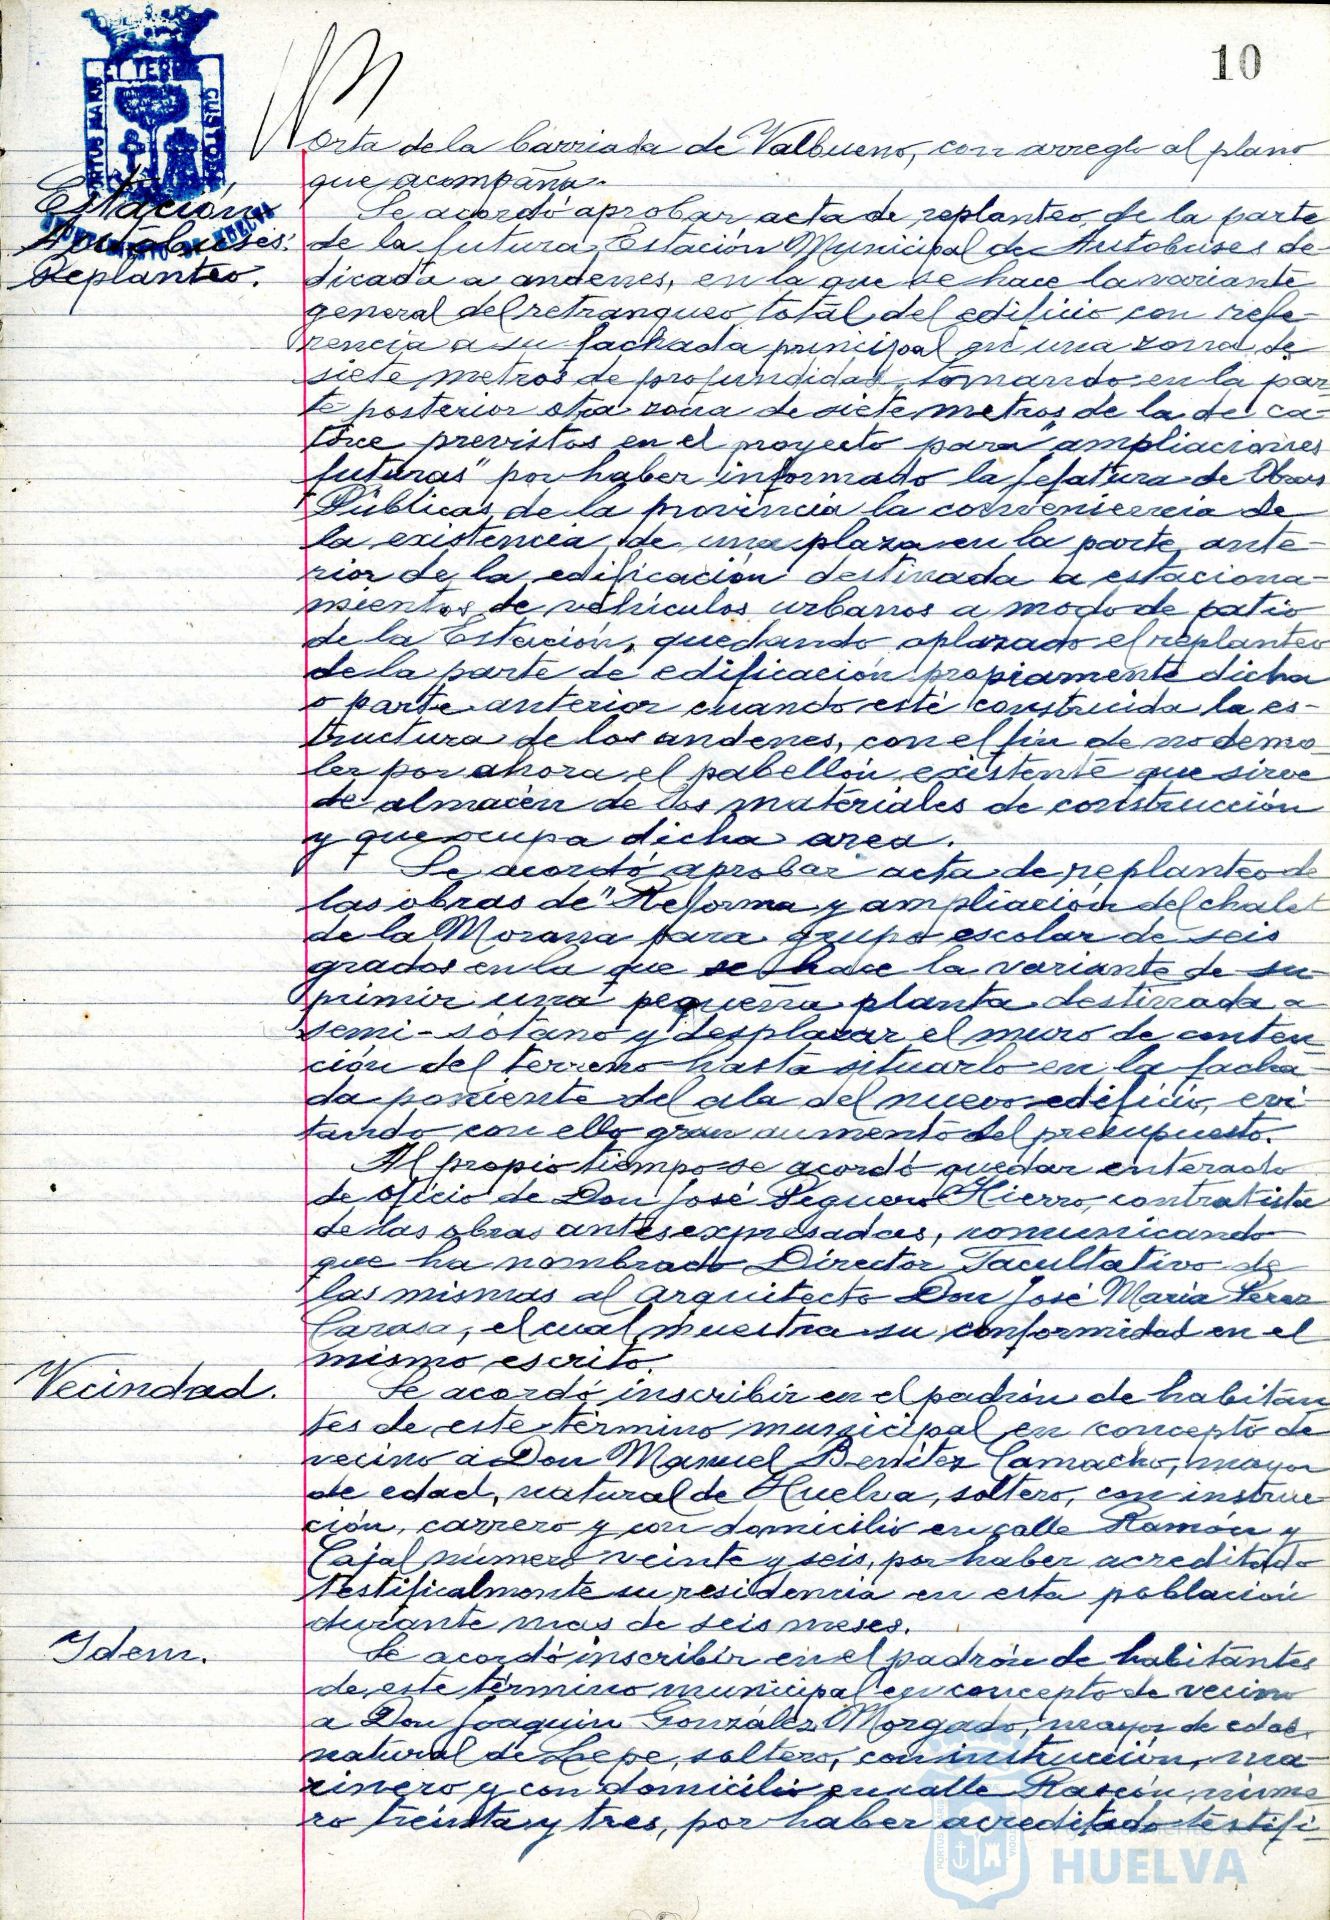 10
PORTUS MARIS
ET TERRE
CUSTODIA
AYUNTAMIENTO DE HUELVA
Orta de la barriada de Valbueno, con arreglo al plano
que acompaña.
Estación
Autobuses:
Replanteo.
Se acordó aprobar acta de replanteo de la parte
de la futura Estación Municipal de Autobuses de-
dicada a andenes, en la que se hace la variante
general del retranqueo total del edificio con refe-
rencia a su fachada principal en una zona de
siete metros de profundidad, tomando en la par-
te posterior otra zona de siete metros de la de ca-
torce previstos en el proyecto para "ampliaciones
futuras" por haber informado la Jefatura de Obras
Públicas de la provincia la conveniencia de
la existencia de una plaza en la parte ante-
rior de la edificación destinada a estaciona-
mientos de vehículos urbanos a modo de patio
de la Estación, quedando aplazado el replanteo
de la parte de edificación propiamente dicha
o parte anterior cuando esté construida la es-
tructura de los andenes, con el fin de no demo-
ler por ahora el pabellón existente que sirve
de almacén de los materiales de construcción
y que ocupa dicha area.
Se acordó aprobar acta de replanteo de
las obras de "Reforma y ampliación del chalet
de la Morana para grupo escolar de seis
grados en la que se hace la variante de su-
primir una pequeña planta destinada a
semi-sótano y desplazar el muro de conten-
ción del terreno hasta situarlo en la facha-
da poniente del ala del nuevo edificio, evi-
tando con ello gran aumento del presupuesto.
Al propio tiempo se acordó quedar enterado
de oficio de Don José Peguero Hierro, contratista
de las obras antes expresadas, comunicando
que ha nombrado Director Facultativo de
las mismas al Arquitecto Don José María Perez
Carasa, el cual muestra su conformidad en el
mismo escrito.
Vecindad.
Se acordó inscribir en el padrón de habitan
tes de este término municipal en concepto de
vecino a Don Manuel Benitez Camacho, mayor
de edad, natural de Huelva, soltero, con instruc-
ción, carrero y con domicilio en calle Ramón y
Cajal número veinte y seis, por haber acreditado
testificalmente su residencia en esta población
durante mas de seis meses.
Idem.
Se acordó inscribir en el padrón de habitantes
de este término municipal en concepto de vecino
a Don Joaquin González Morgado, mayor de edad,
natural de Lepe, soltero, con instrucción, ma-
rinero y con domicilio en calle Rascón, núme
ro treinta y tres, por haber acreditado testifi-
HUELVA